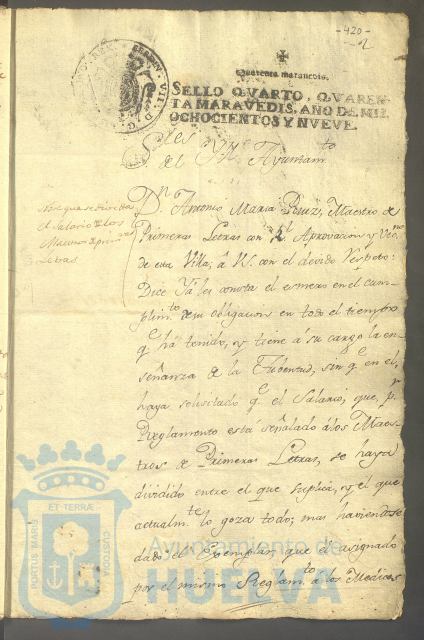 -420-
Quarenta maravedis.
SELLO QVARTO, QVAREN-
TA MARAVEDIS, AÑO DE MIL
OCHOCIENTOS Y NVEVE.
S.res del Yll.e Ayuntam.to
Dn. Antonio Maria Ruiz, Maestro de
Primeras Letras con Rl. Aprovacion, y Vecno.
de esta Villa; à VV. con el devido respeto:
Dice Ya les consta el esmero en el cum-
plim.to de su obligacion en todo el tiempo
q.e hà tenido, y tiene à su cargo la en-
señanza de la Jubentud, sin q.e en el,
haya solicitado q.e el Salario, que, p.r
Reglamento està señalado à los Maes-
tros de Primeras Letras, se haya
dividido entre el que suplica, y el que
actualm.te lo goza todo; mas haviendose
dado el Exemplar, que el asignado
por el mismo Reglam.to à los Medicos
el Salario de los
Maestros de prim.as
Letras
PORTUS MARIS
ET TERRÆ
CUSTODIA
Ayuntamiento de
HUELVA